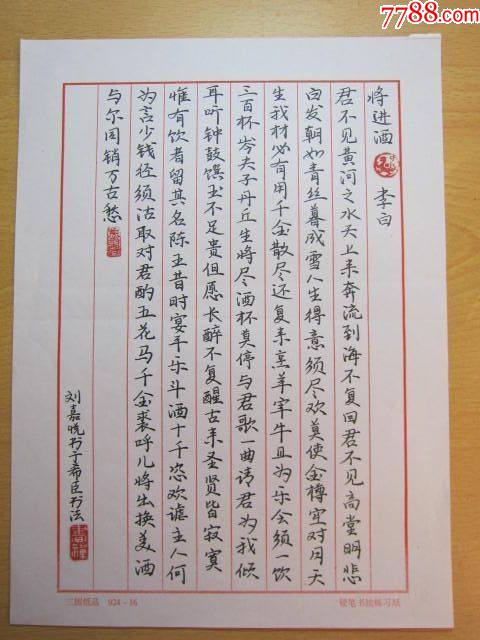 7788.com
将进酒 李白
君不见黄河之水天上来奔流到海不复回君不见高堂明悲
白发朝如青丝暮成雪人生得意须尽欢莫使金樽空对月天
生我材必有用千金散尽还复来烹羊宰牛且为乐会须一饮
三百杯岑夫子丹丘生将尽酒杯莫停与君歌一曲请君为我倾
耳听钟鼓馔玉不足贵但愿长醉不复醒古来圣贤皆寂寞
惟有饮者留其名陈王昔时宴平乐斗酒十千恣欢谑主人何
为言少钱径须沽取对君酌五花马千金裘呼儿将出换美酒
与尔同销万古愁
刘嘉悦书于希臣书法
纸品 924-16
硬笔书法练习纸